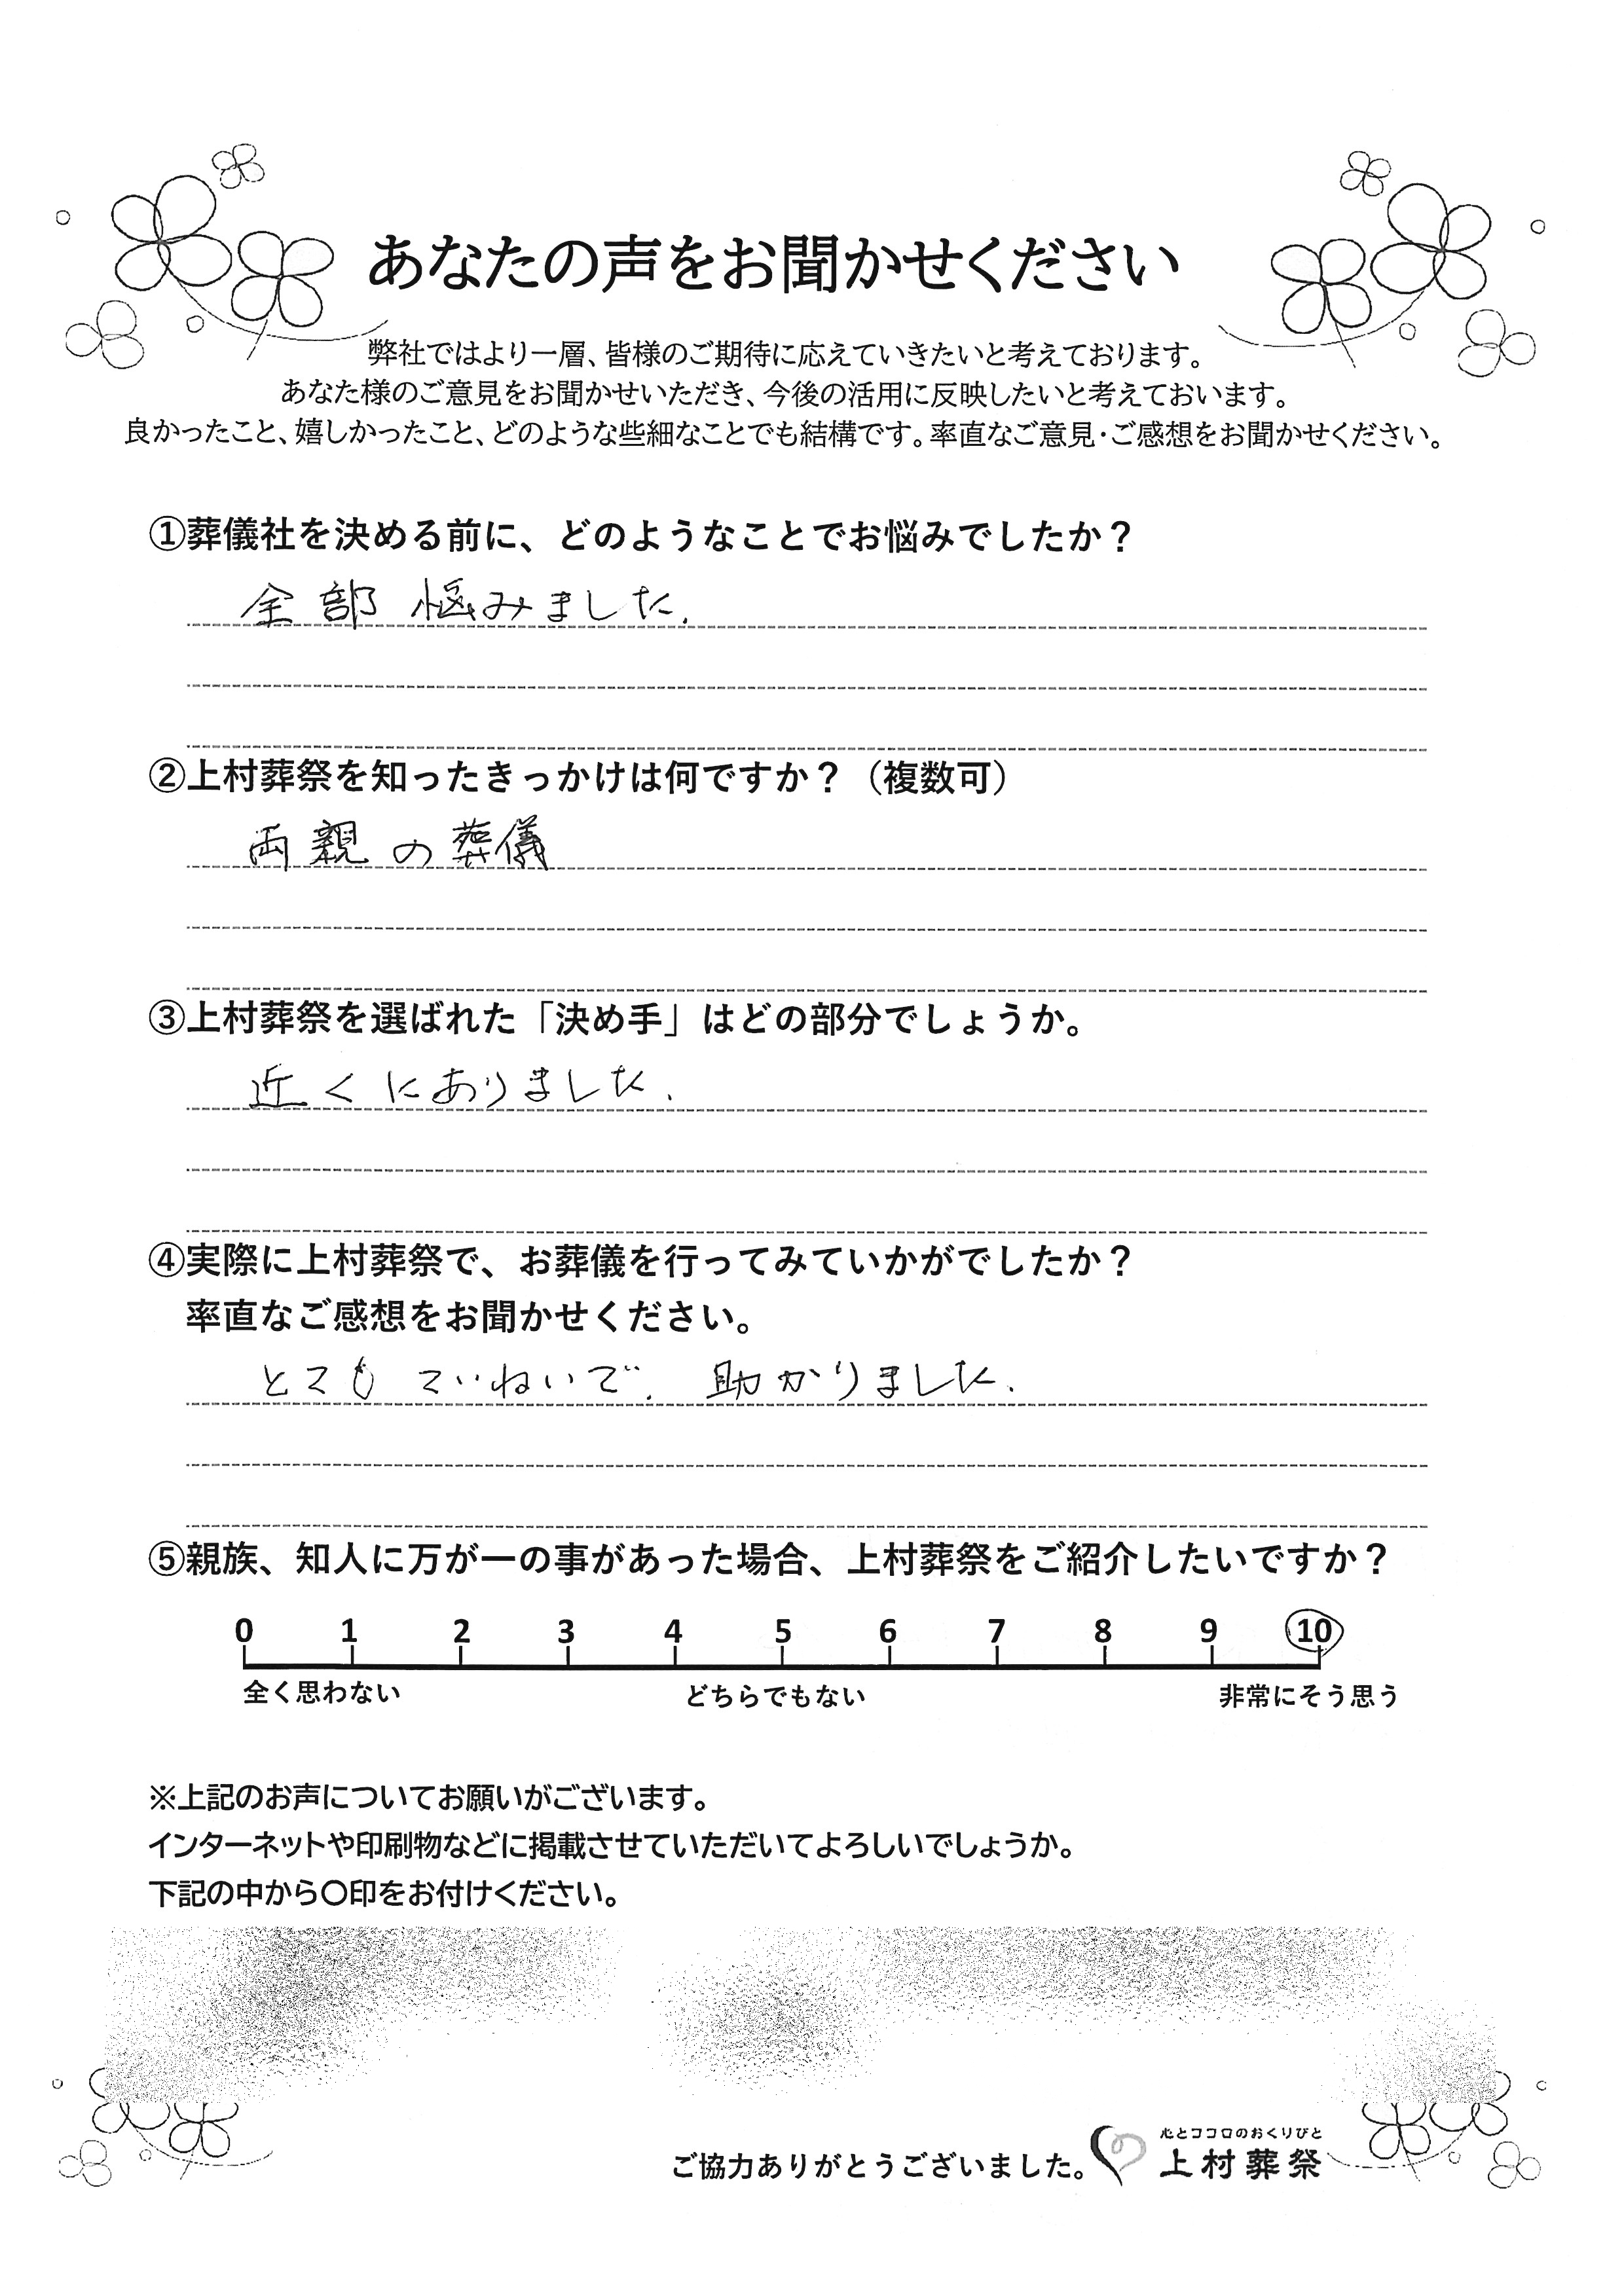 あなたの声をお聞かせください
弊社ではより一層、皆様のご期待に応えていきたいと考えております。
あなた様のご意見をお聞かせいただき、今後の活用に反映したいと考えておいます。
良かったこと、嬉しかったこと、どのような些細なことでも結構です。率直なご意見・ご感想をお聞かせください。
①葬儀社を決める前に、どのようなことでお悩みでしたか？
全部 悩みました.
②上村葬祭を知ったきっかけは何ですか？（複数可）
両親の葬儀
③上村葬祭を選ばれた「決め手」はどの部分でしょうか。
近くにありました.
④実際に上村葬祭で、お葬儀を行ってみていかがでしたか？
率直なご感想をお聞かせください。
とても ていねいで. 助かりました.
⑤親族、知人に万が一の事があった場合、上村葬祭をご紹介したいですか？
0 1 2 3 4 5 6 7 8 9 10
全く思わない どちらでもない 非常にそう思う
※上記のお声についてお願いがございます。
インターネットや印刷物などに掲載させていただいてよろしいでしょうか。
下記の中から〇印をお付けください。
心とココロのおくりびと
ご協力ありがとうございました。 上村葬祭